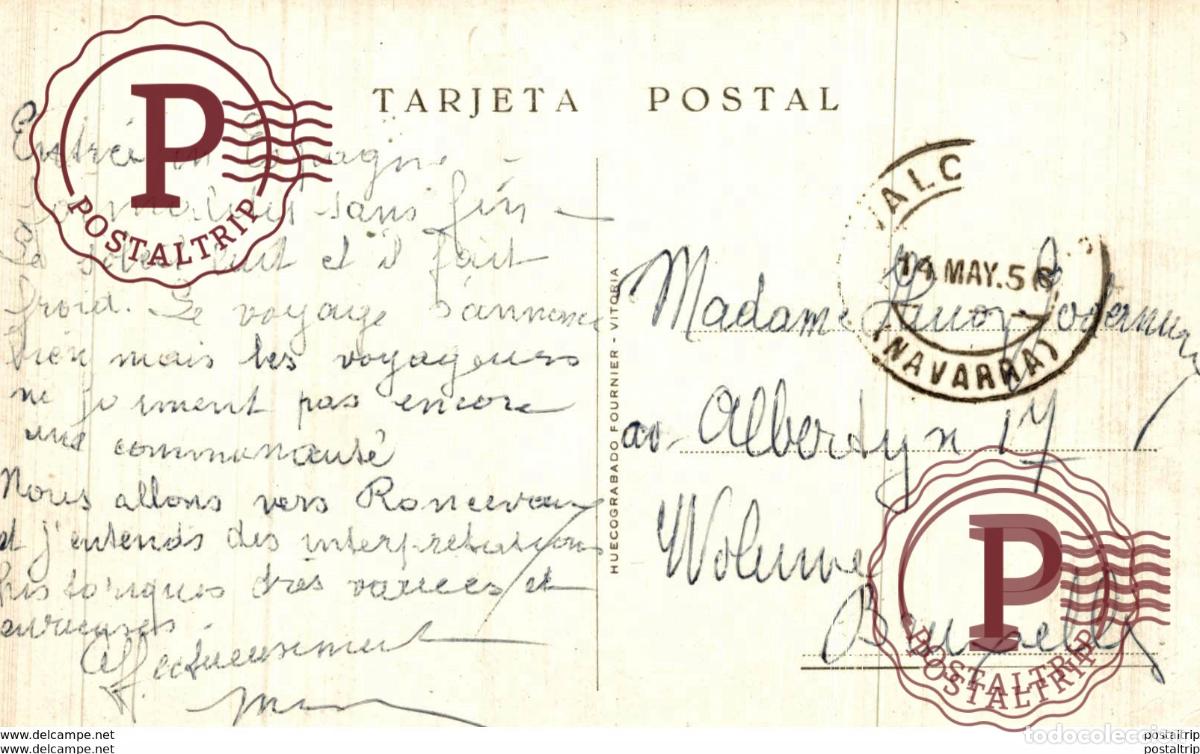 TARJETA POSTAL
Entrée en Espagne
sans fin
et il fait
froid. Le voyage s'annonce
bien mais les voyageurs
ne forment pas encore
une communauté
Nous allons vers Roncevaux
et j'entends des interprétations
historiques très variées et
curieuses.
Affectueusement
HUECOGRABADO FOURNIER - VITORIA
VALC
14 MAY. 56
(NAVARRA)
Madame
av. Alberdyn 17
Woluwe
Bruxelles
P
POSTALTRIP
P
POSTALTRIP
POSTALTRIP
todocoleccion
www.delcampe.net
postaltrip
www.delcampe.net
postaltrip